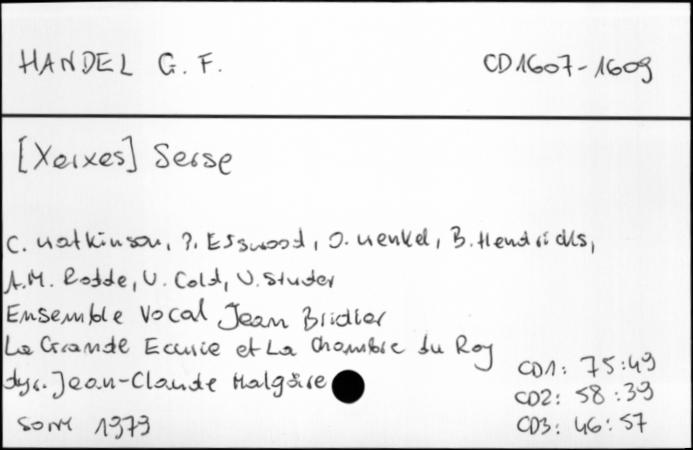 HANDEL G. F. CD1607-1609
[Xerxes] Serse
C. Watkinson, P. Esswood, O. Wenkel, B. Hendricks,
A.M. Rodde, U. Cold, U. Studer
Ensemble Vocal Jean Bridier
La Grande Ecurie et La Chambre du Roy
dyr. Jean-Claude Malgoire
SONY 1979
CD1: 75:49
CD2: 58:39
CD3: 46:57